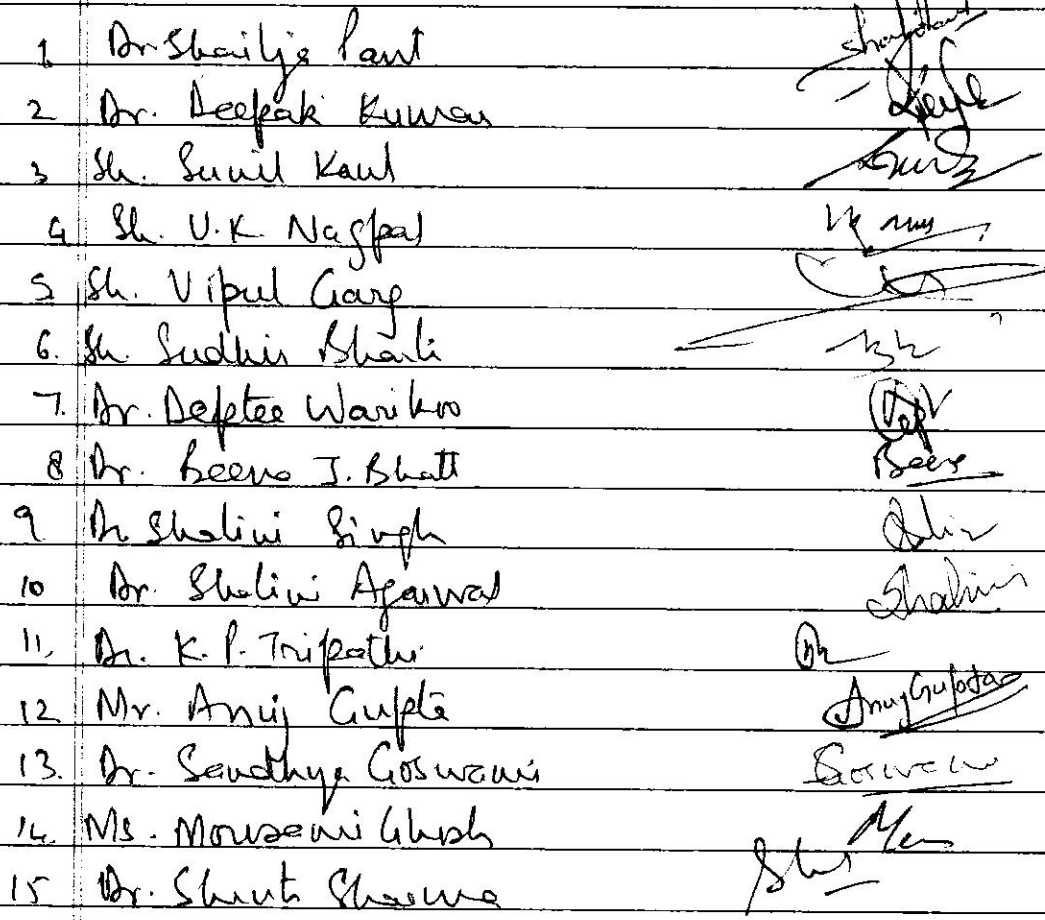 1 Dr Shailja Pant
2 Dr. Deepak Kumar
3 Sh. Sunil Kaul
4 Sh. V.K. Nagpal
5 Sh. Vipul Garg
6. Sh. Sudhir Bharti
7. Dr. Deptee Warikoo
8 Dr. Beena J. Bhatt Beena
9 Dr Shalini Singh
10 Dr. Shalini Agarwal Shalini
11. Dr. K. P. Tripathi
12 Mr. Anuj Gupta Anuj Gupta
13. Dr. Sandhya Goswami Goswami
14. Ms. Mousami Ghosh
15 Dr. Shruti Sharma